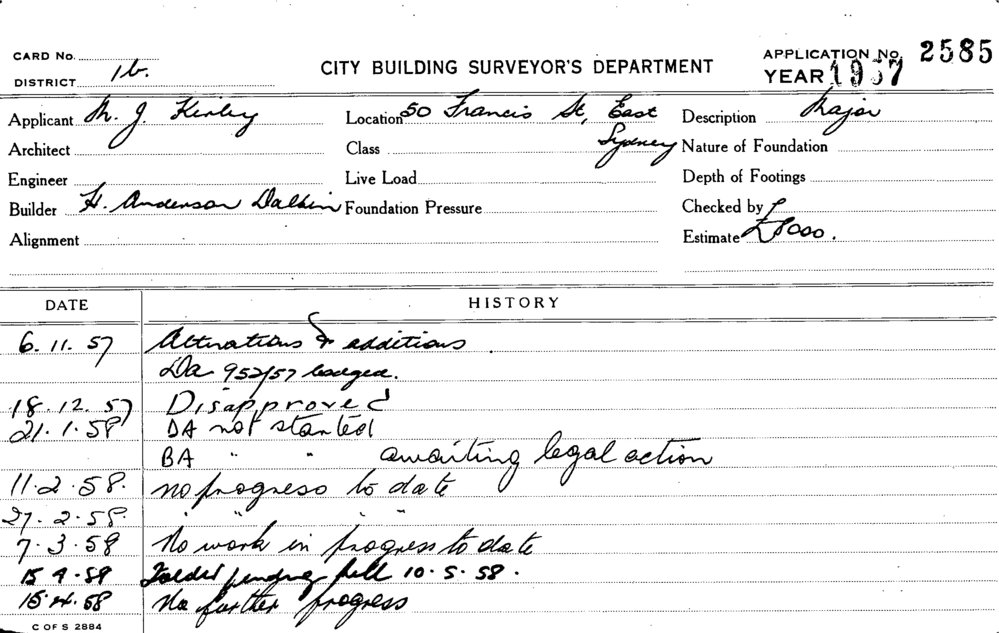 CARD No.
DISTRICT 1b.
CITY BUILDING SURVEYOR'S DEPARTMENT
APPLICATION No. 2585
YEAR 1957
Applicant M. J. Kirley
Location 50 Francis St, East Sydney
Description Major
Architect
Class
Nature of Foundation
Engineer
Live Load
Depth of Footings
Builder H. Anderson Dalkin
Foundation Pressure
Checked by
Alignment
Estimate £8000.
DATE
HISTORY
6. 11. 57 Alterations & additions
Da 952/57 lodged.
18. 12. 57 Disapproved
21. 1. 58 DA not started
BA " " awaiting legal action
11. 2. 58. no progress to date
27. 2. 58. " " "
7. 3. 58 No work in progress to date
pending 10. 5. 58.
15. 4. 58 No further progress
C OF S 2884